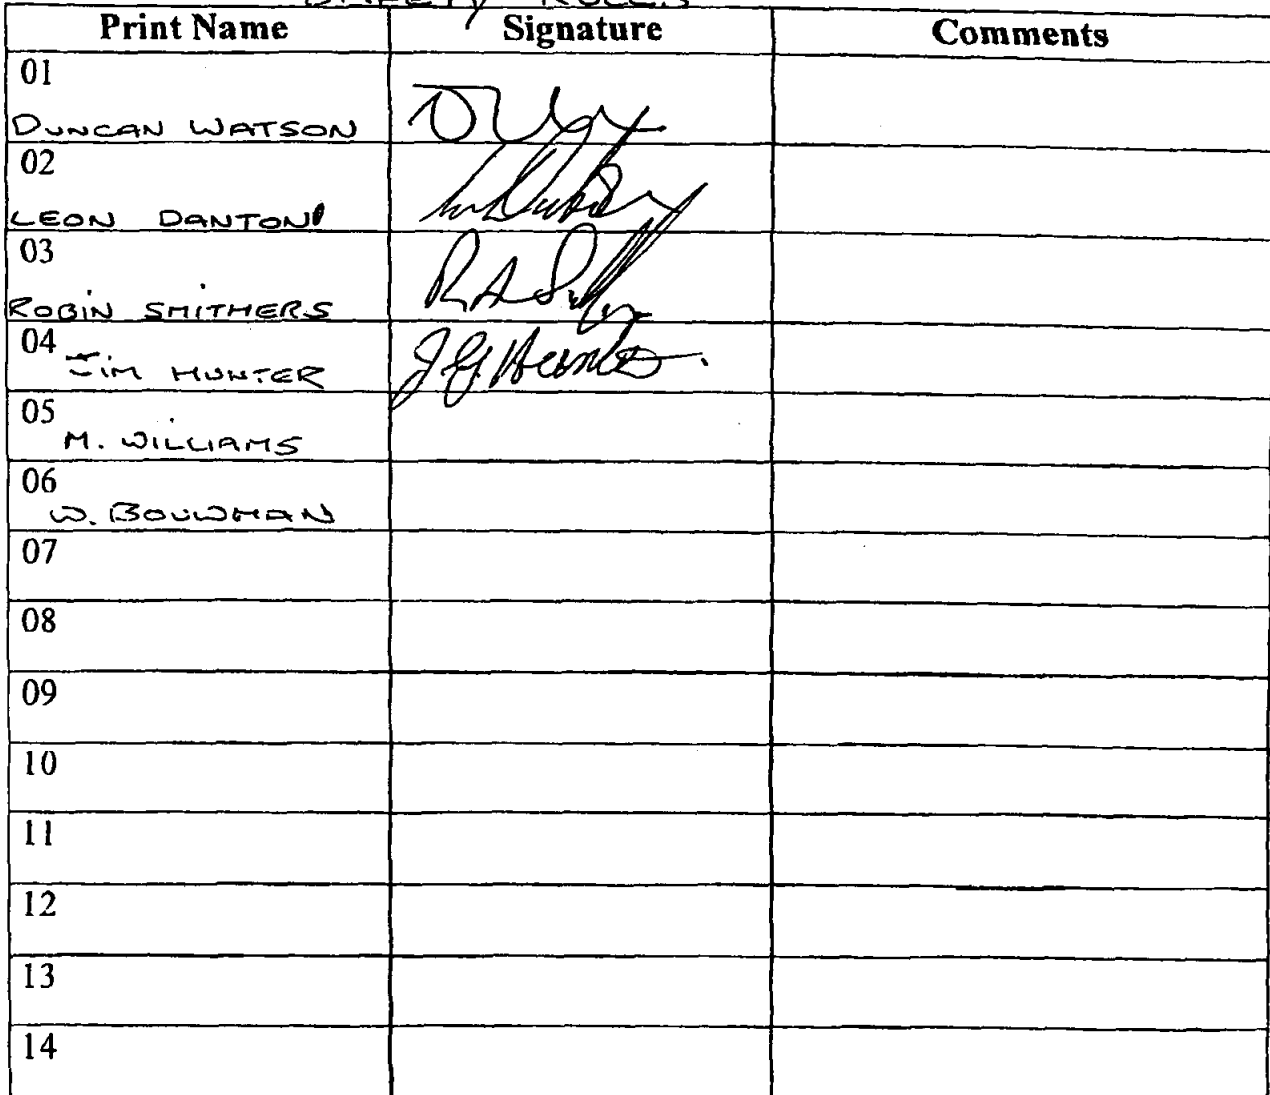 SAFETY RULES
Print Name Signature Comments
01
DUNCAN WATSON
02
LEON DANTON
03
ROBIN SMITHERS R A
04
JIM HUNTER J G Hunter
05
M. WILLIAMS
06
W. BOUWMAN
07
08
09
10
11
12
13
14